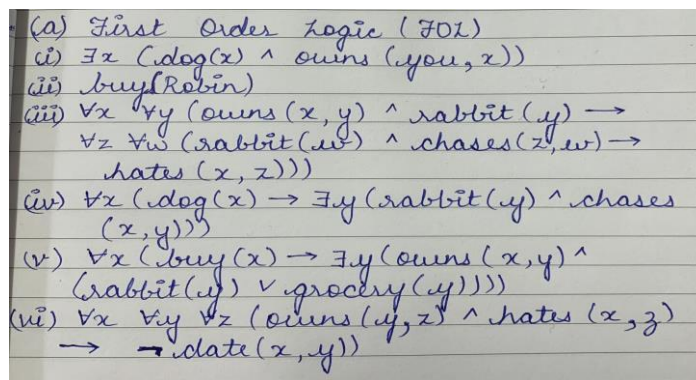 (a) First Order Logic (FOL)
(i) ∃x (dog(x) ^ owns (you, x))
(ii) buy(Robin)
(iii) ∀x ∀y (owns (x, y) ^ rabbit (y) →
∀z ∀w (rabbit (w) ^ chases(z, w) →
hates (x, z)))
(iv) ∀x (dog(x) → ∃y (rabbit(y) ^ chases
(x, y)))
(v) ∀x (buy(x) → ∃y (owns (x, y) ^
(rabbit(y) ∨ grocery(y))))
(vi) ∀x ∀y ∀z (owns (y, z) ^ hates (x, z)
→ ¬date(x, y))